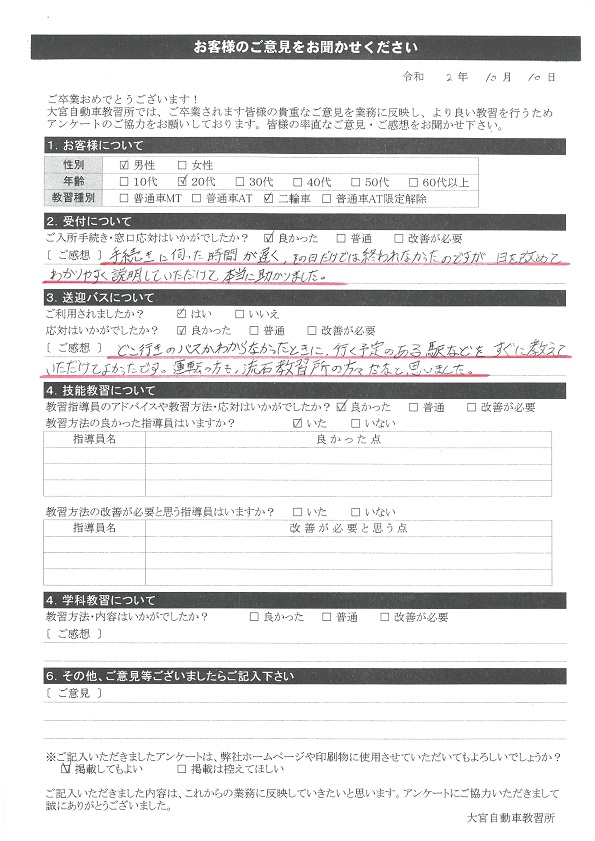 お客様のご意見をお聞かせください
令和 2 年 10 月 10 日
ご卒業おめでとうございます！
大宮自動車教習所では、ご卒業されます皆様の貴重なご意見を業務に反映し、より良い教習を行うため
アンケートのご協力をお願いしております。皆様の率直なご意見・ご感想をお聞かせ下さい。
1. お客様について
性別 ☑ 男性 □ 女性
年齢 □ 10代 ☑ 20代 □ 30代 □ 40代 □ 50代 □ 60代以上
教習種別 □ 普通車MT □ 普通車AT ☑ 二輪車 □ 普通車AT限定解除
2. 受付について
ご入所手続き・窓口応対はいかがでしたか？ ☑ 良かった □ 普通 □ 改善が必要
〔 ご感想 〕 手続きに伺った時間が遅く、その日だけでは終われなかったのですが 日を改めて
わかりやすく説明していただけて本当に助かりました。
3. 送迎バスについて
ご利用されましたか？ ☑ はい □ いいえ
応対はいかがでしたか？ ☑ 良かった □ 普通 □ 改善が必要
〔 ご感想 〕 どこ行きのバスかわからなかったときに、行く予定のある駅などをすぐに教えて
いただけてよかったです。運転の方も、流石教習所の方々だなと思いました。
4. 技能教習について
教習指導員のアドバイスや教習方法・応対はいかがでしたか？ ☑ 良かった □ 普通 □ 改善が必要
教習方法の良かった指導員はいますか？ ☑ いた □ いない
指導員名 良かった点
教習方法の改善が必要と思う指導員はいますか？ □ いた □ いない
指導員名 改善が必要と思う点
4. 学科教習について
教習方法・内容はいかがでしたか？ □ 良かった □ 普通 □ 改善が必要
〔 ご感想 〕
6. その他、ご意見等ございましたらご記入下さい
〔 ご意見 〕
※ご記入いただきましたアンケートは、弊社ホームページや印刷物に使用させていただいてもよろしいでしょうか？
☑ 掲載してもよい □ 掲載は控えてほしい
ご記入いただきました内容は、これからの業務に反映していきたいと思います。アンケートにご協力いただきまして
誠にありがとうございました。
大宮自動車教習所